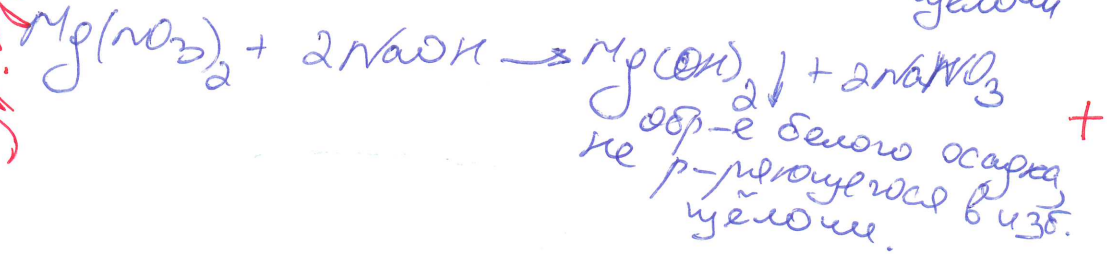 щёлочи
Mg(NO3)2 + 2NaOH → Mg(OH)2↓ + 2NaNO3
+
обр-е белого осадка,
не р-ряющегося в изб.
щёлочи.